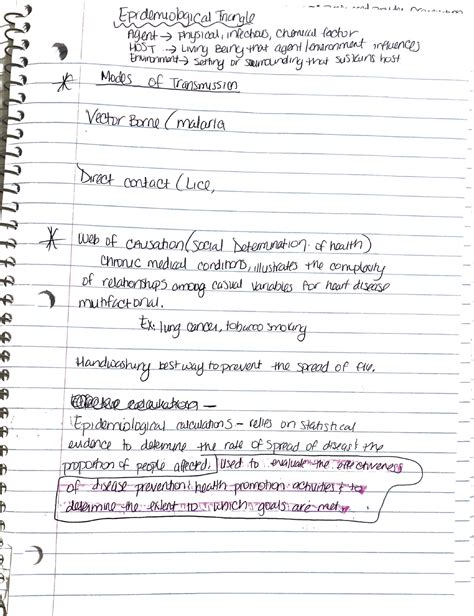 Epidemiological Triangle
Agent → physical, infectious, chemical factor
HOST → Living Being that agent/environment influences
Environment → Setting or surrounding that sustains host
* Modes of Transmission
Vector Borne (malaria
Direct contact (Lice,
* Web of causation (Social Determination of health)
chronic medical conditions, illustrates the complexity
of relationships among casual variables for heart disease
multifactorial.
Ex: lung cancer, tobacco smoking
Handwashing best way to prevent the spread of flu.
Epidemiological calculations - relies on statistical
evidence to determine the rate of spread of disease & the
proportion of people affected. used to evaluate the effectiveness
of disease prevention & health promotion activities & to
determine the extent to which goals are met